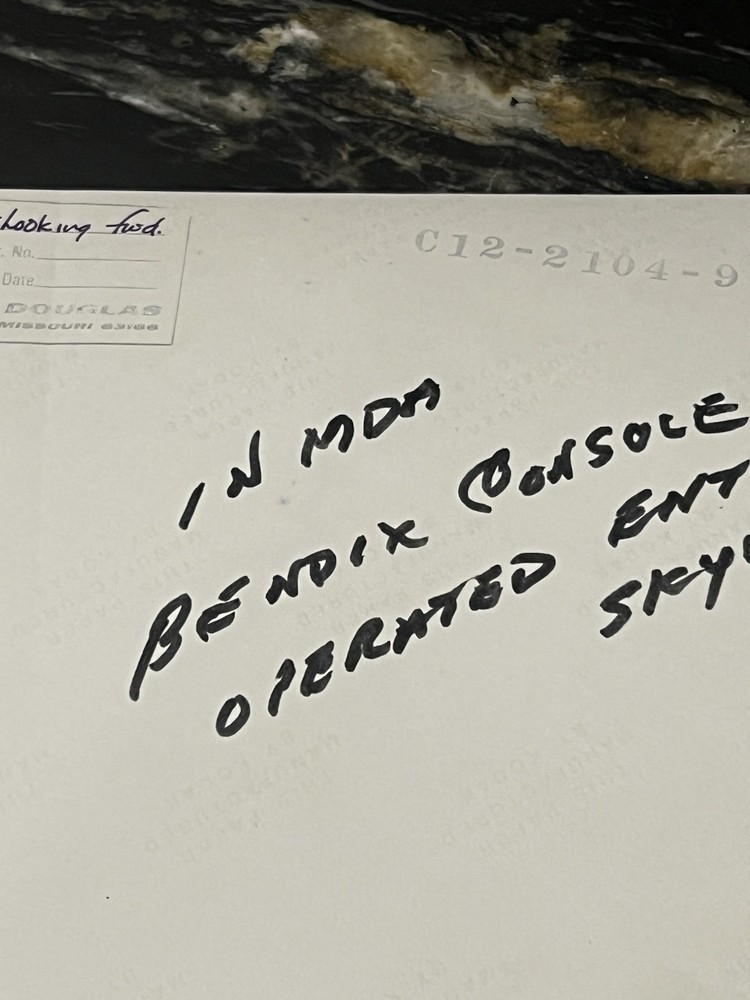 Looking fwd.
. No.
Date
DOUGLAS
MISSOURI 63166
C12-2104-9
IN MDA
BENDIX CONSOLE
OPERATED ENT
SKY